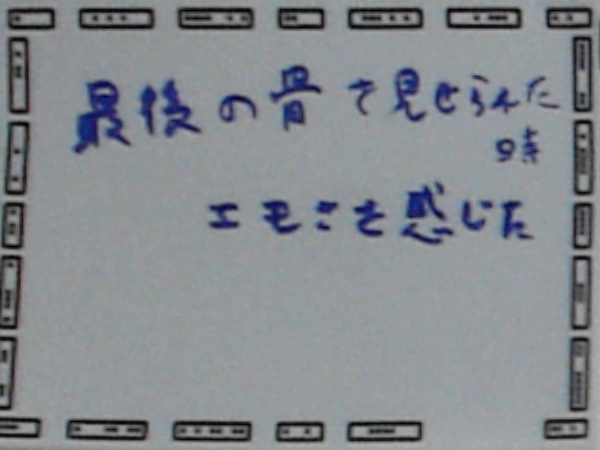 最後の骨で見せられた
時
エモさを感じた